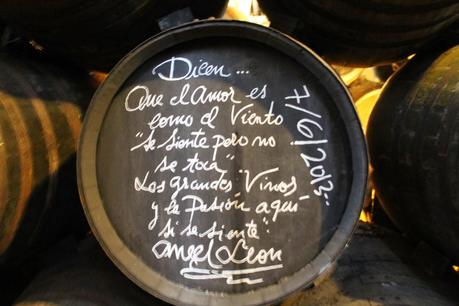 Dicen...
Que el Amor es
como el Viento
"se siente pero no
se toca"
Los grandes Vinos
y la Pasión aquí
si se siente".
Angel Leon
7/6/2013